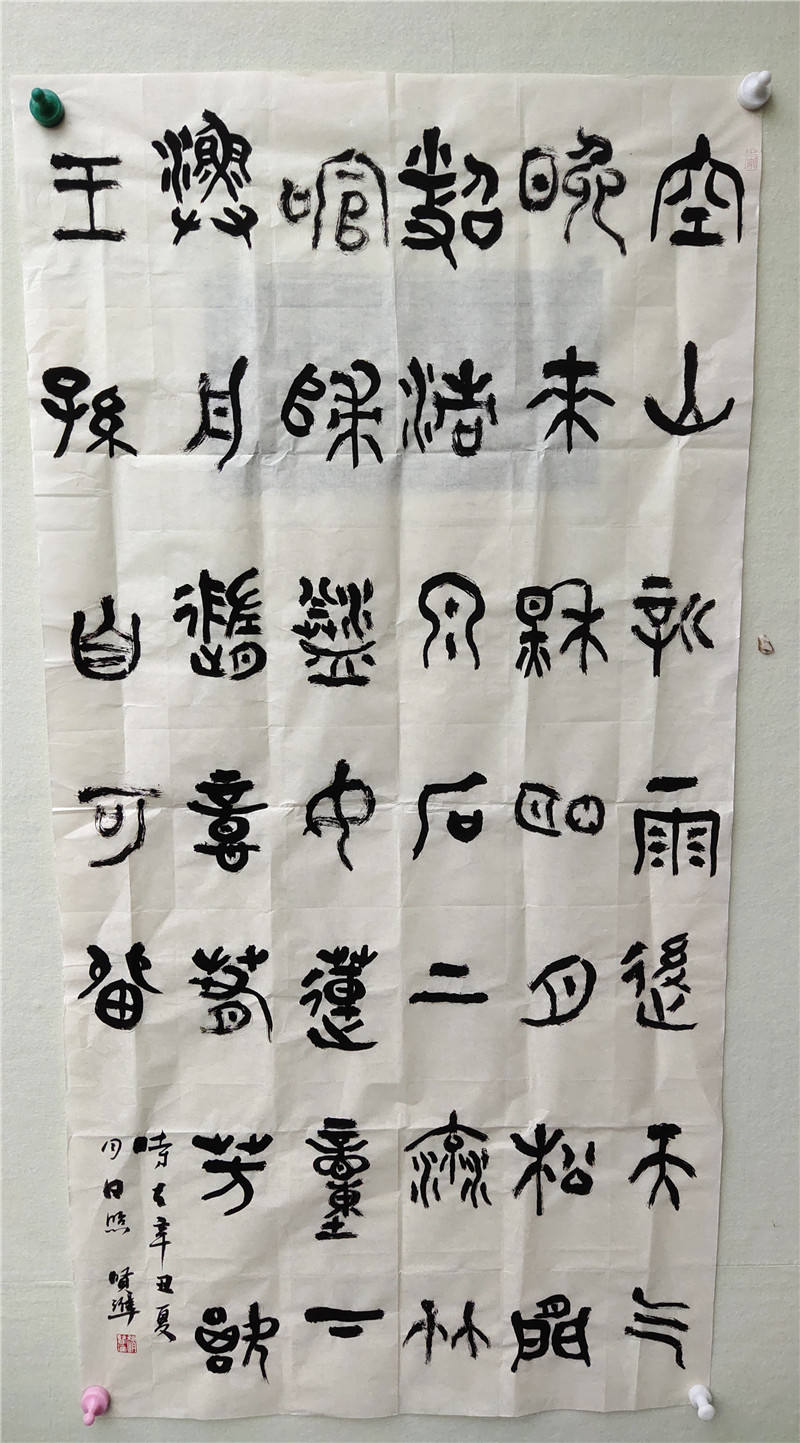 空山新雨後天气
晚來秋明月松間
照清泉石上流竹
喧歸浣女蓮動下
漁舟隨意春芳歇
王孫自可留
時在辛丑夏
月日照